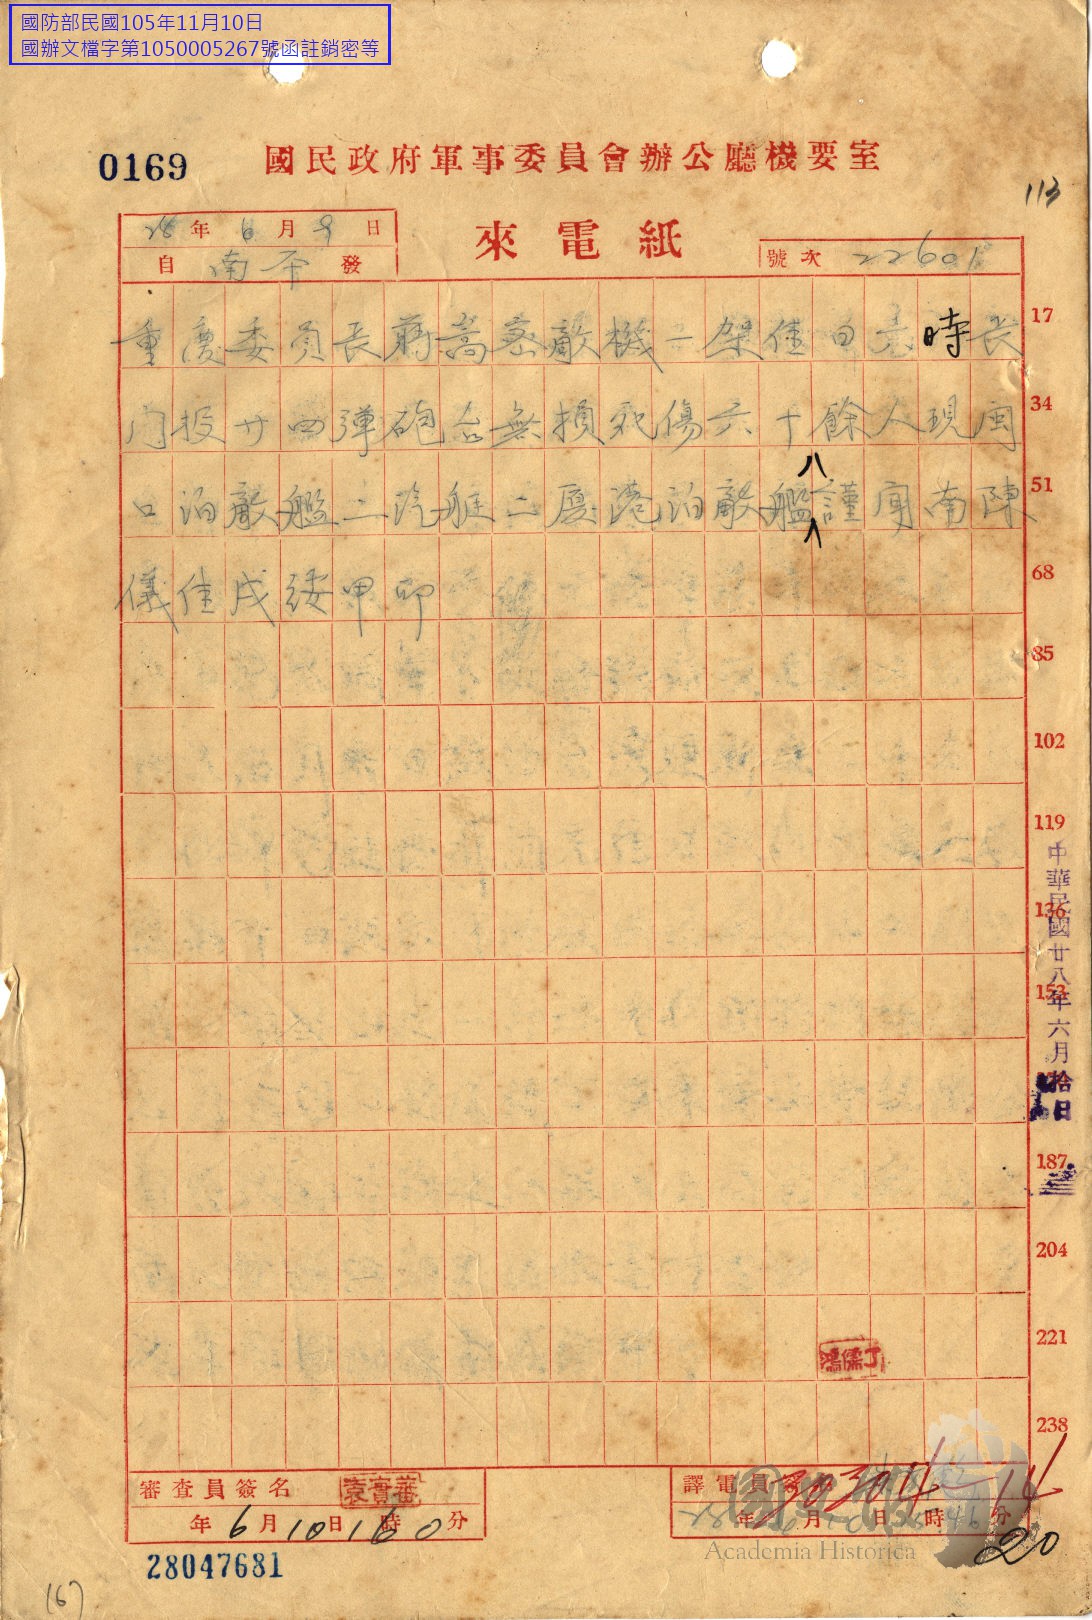 國防部民國105年11月10日
國辦文檔字第1050005267號函註銷密等
0169
國民政府軍事委員會辦公廳機要室
113
28年6月9日
來電紙
自南平發
號次 22601
重慶委員長蔣蒿密敵機二架佳日亮時長 17
門投廿四彈砲台無損死傷六十餘人現閩 34
口泊敵艦二汽艇二廈港泊敵艦八謹聞南陳 51
儀佳戌綏甲印 68
85
102
119
136
153
187
204
221
238
中華民國廿八年六月拾日
丁儒鴻
審查員簽名 袁實蕃
年6月10日18時0分
譯電員
年 月 日 時 分
14
20
28047681
Academia Historica
(6)